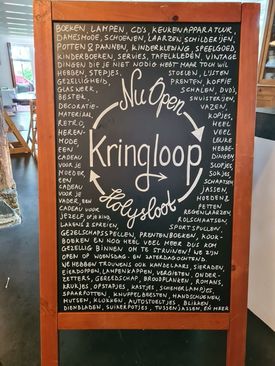 BOEKEN, LAMPEN, CD'S, KEUKENAPPARATUUR,
DAMESMODE, SCHOENEN, LAARZEN, SCHILDERIJEN,
POTTEN & PANNEN, KINDERKLEDING, SPEELGOED,
KINDERBOEKEN, SERVIES, TAFELKLEDEN, VINTAGE
DINGEN DIE JE NIET NODIG HEBT MAAR TOCH WIL
HEBBEN, STEPJES,
GEZELLIGHEID,
GLASWERK,
BESTEK,
DECORATIE-
MATERIAAL,
RETRO,
HEREN-
MODE,
EEN
CADEAU
VOOR JE
MOEDER,
EEN
CADEAU
VOOR JE
VADER, EEN
CADEAU VOOR
JEZELF, OF JE KIND,
LAKENS & SPREIEN,
STOELEN, LIJSTEN
PRENTEN, KOFFIE
SCHALEN, DVD'S,
SNUISTERIJEN,
VAZEN,
KOPJES,
HEEL
VEEL
LEUKE
HEBBE-
DINGEN
SLOPJES,
SOKJES,
SCHAATSEN
JASSEN
HOEDEN &
PETTEN
REGENLAARZEN,
ROLSCHAATSEN,
SPORTSPULLEN,
Nu Open
Kringloop
Holysloot
GEZELSCHAPSSPELLEN, PRENTENBOEKEN, KOOK-
BOEKEN EN NOG HEEL VEEL MEER DUS KOM
GEZELLIG BINNEN OM TE STRUINEN! WE ZIJN
OPEN OP WOENSDAG- EN ZATERDAGOCHTEND.
WE HEBBEN TROUWENS OOK KANDELAARS, SIERADEN,
EIERDOPPEN, LAMPENKAPPEN, VERGIETEN, ONDER-
ZETTERS, GEREEDSCHAP, BROODPLANKEN, ROMANS,
KRUKJES, OPSTAPJES, KASTJES, SCHEMERLAMPJES,
SPAARPOTTEN, KNUFFELBEESTEN, HANDSCHOENEN,
MUTSEN, KLOKKEN, AUTOSTOELTJES, BLIKKEN,
DIENBLADEN, SUIKERPOTJES, TUSSENJASSEN, EN MEER